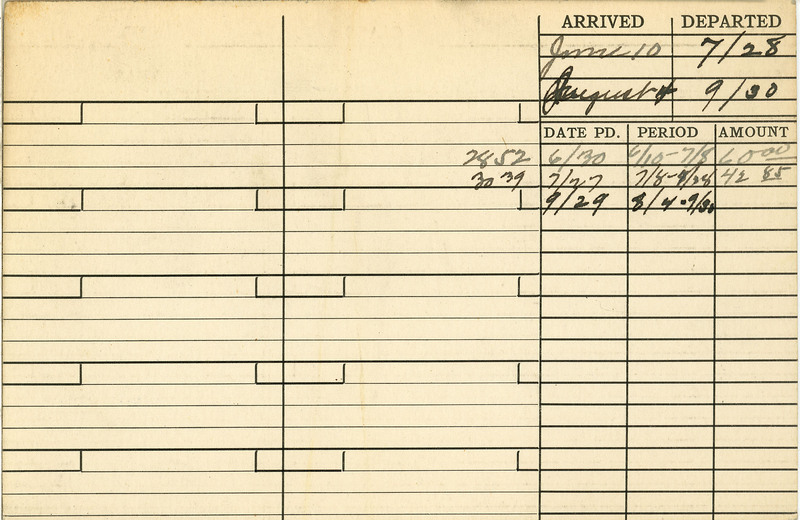 ARRIVED DEPARTED
June 10 7/28
August 4 9/30
DATE PD. PERIOD AMOUNT
2852 6/30 6/10-7/8 60 00
3039 7/27 7/8-9/28 42 85
9/29 8/4-9/30